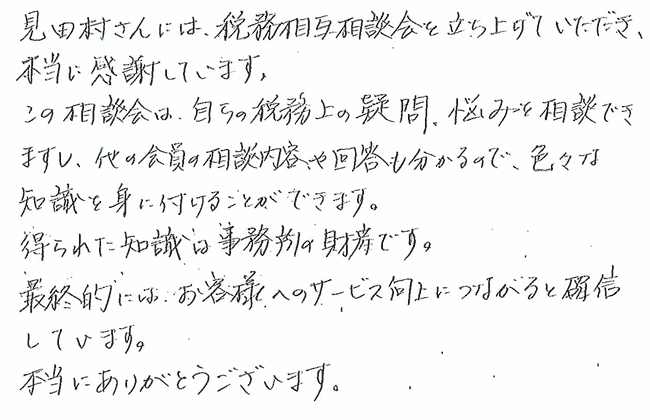 見田村さんには、税務相互相談会を立ち上げていただき、
本当に感謝しています。
この相談会は、自らの税務上の疑問、悩みを相談でき
ますし、他の会員の相談内容や回答も分かるので、色々な
知識を身に付けることができます。
得られた知識は事務所の財産です。
最終的には、お客様へのサービス向上につながると確信
しています。
本当にありがとうございます。